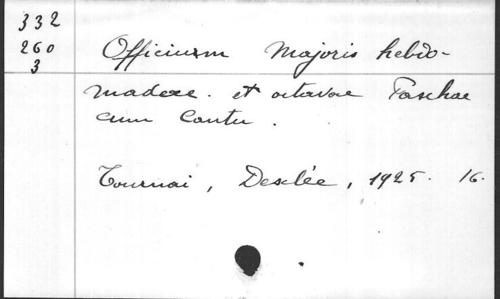 332
260
3
Officium Majoris hebdo-
madae. et octavae Paschae
cum Cantu.
Tournai, Desclée, 1925. 16.